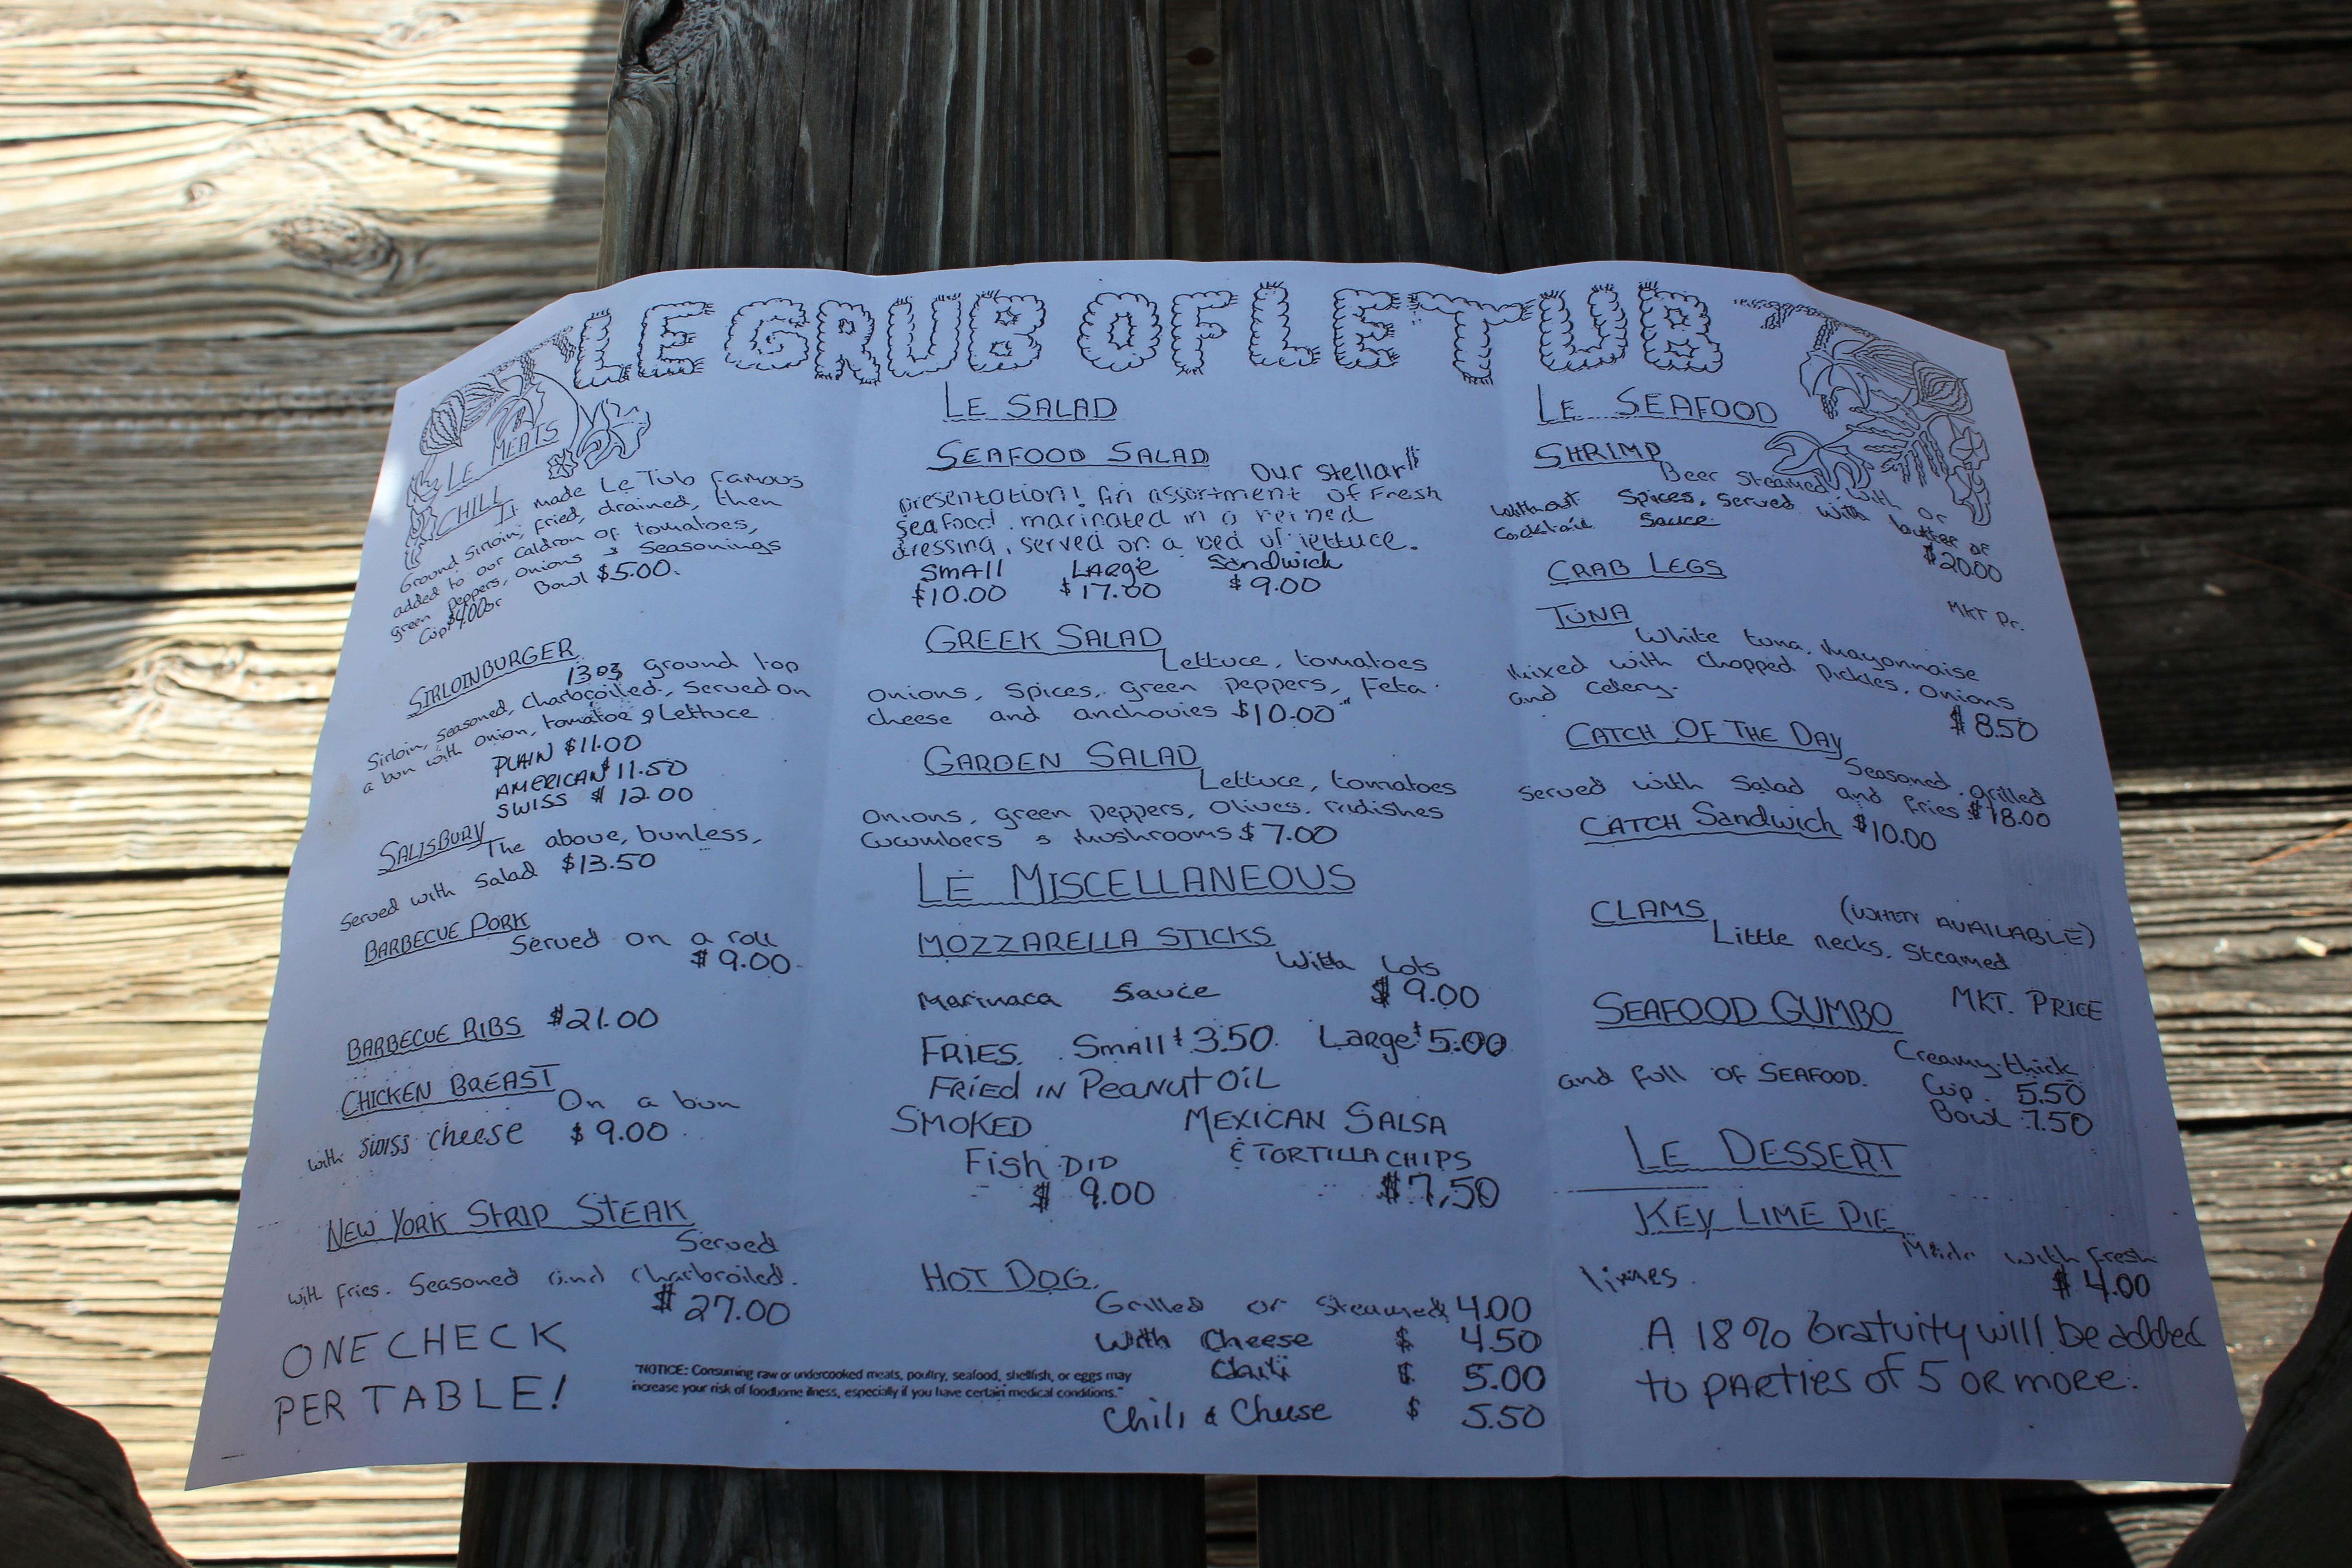 LE GRUB OF LE TUB
LE MEATS
CHILI
It made Le Tub Famous
Ground Sirloin, fried, drained, then
added to our Caldron of tomatoes,
green peppers, onions & Seasonings
Cup $4.00 or Bowl $5.00.
SIRLOINBURGER
13 oz ground top
Sirloin, seasoned, Charbroiled, Served on
a bun with onion, tomatoe & Lettuce
PLAIN $11.00
AMERICAN $11.50
SWISS $12.00
SALISBURY
The above, bunless,
Served with Salad $13.50
BARBECUE PORK
Served on a roll
$9.00
BARBECUE RIBS $21.00
CHICKEN BREAST
On a bun
with SWISS cheese $9.00
NEW YORK STRIP STEAK
Served
with fries. Seasoned and Charbroiled.
$27.00
ONE CHECK
PER TABLE!
LE SALAD
SEAFOOD SALAD
Our Stellar
presentation! An assortment of Fresh
Seafood, marinated in a
dressing, served on a bed of lettuce.
SMALL LARGE Sandwich
$10.00 $17.00 $9.00
GREEK SALAD
Lettuce, tomatoes
Onions, Spices, green peppers, Feta
Cheese and anchovies $10.00
GARDEN SALAD
Lettuce, tomatoes
Onions, green peppers, Olives, radishes
Cucumbers & Mushrooms $7.00
LE MISCELLANEOUS
MOZZARELLA STICKS
With Lots
Marinara Sauce $9.00
FRIES. Small $3.50. Large $5.00
FRIED IN PEANUT OIL
SMOKED
Fish DIP
$9.00
MEXICAN SALSA
& TORTILLA CHIPS
$7.50
HOT DOG.
Grilled or Steamed 4.00
With Cheese $ 4.50
Chili $ 5.00
Chili & Cheese $ 5.50
"NOTICE: Consuming raw or undercooked meats, poultry, seafood, shellfish, or eggs may
increase your risk of foodborne illness, especially if you have certain medical conditions."
LE SEAFOOD
SHRIMP
Beer Steamed, with or
without Spices, Served with butter or
Cocktail Sauce.
$20.00
CRAB LEGS
MKT Pr.
TUNA
White tuna, Mayonnaise
Mixed with Chopped Pickles, Onions
and Celery.
$8.50
CATCH OF THE DAY
Seasoned, grilled
Served with Salad and fries $18.00
CATCH Sandwich $10.00
CLAMS (WHEN AVAILABLE)
Little necks, Steamed
MKT. PRICE
SEAFOOD GUMBO
Creamy, thick
and full of SEAFOOD.
Cup 5.50
Bowl 7.50
LE DESSERT
KEY LIME PIE
Made with fresh
limes.
$4.00
A 18% Gratuity will be added
to parties of 5 or more.